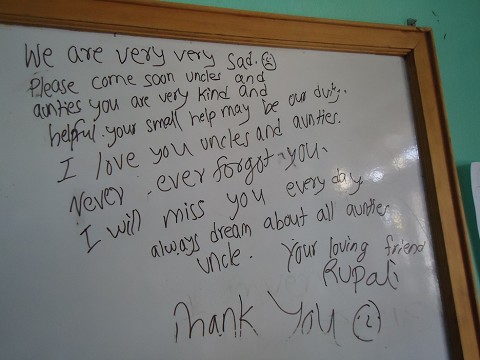 We are very very sad.
Please come soon uncles and
aunties you are very kind and
helpful. your small help may be our duty.
I love you uncles and aunties.
Never ever forgot you.
I will miss you every day
always dream about all aunties
uncle. Your loving friend
Rupali
Thank You